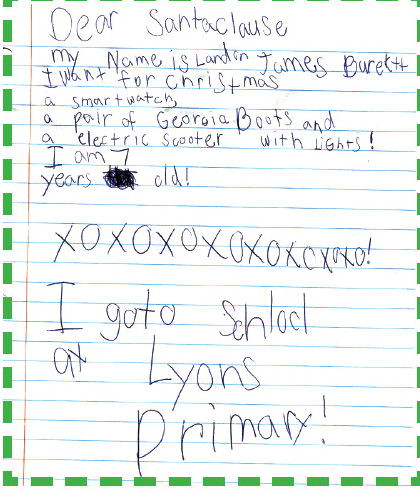 Dear Santaclause
my Name is Landon James Burett
I want for christmas
a smartwatch,
a pair of Georgia Boots and
a electric scooter with LiGHts!
I am 7
years old!
XOXOXOXOXOXOXOXO!
I goto Schlool
at Lyons
primary!